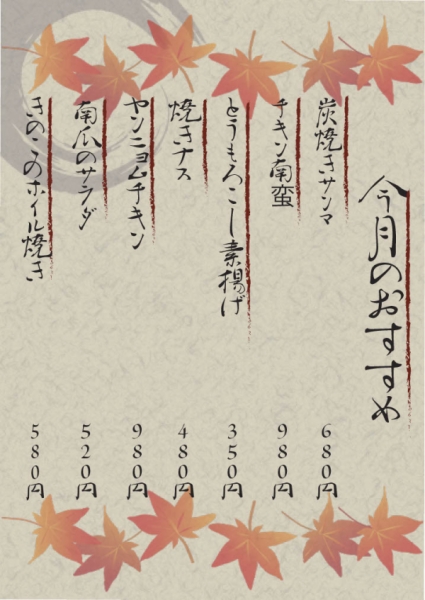 今月のおすすめ
炭焼きサンマ
680円
チキン南蛮
980円
とうもろこし素揚げ
350円
焼きナス
480円
ヤンニョムチキン
980円
南瓜のサラダ
520円
きのこのホイル焼き
580円